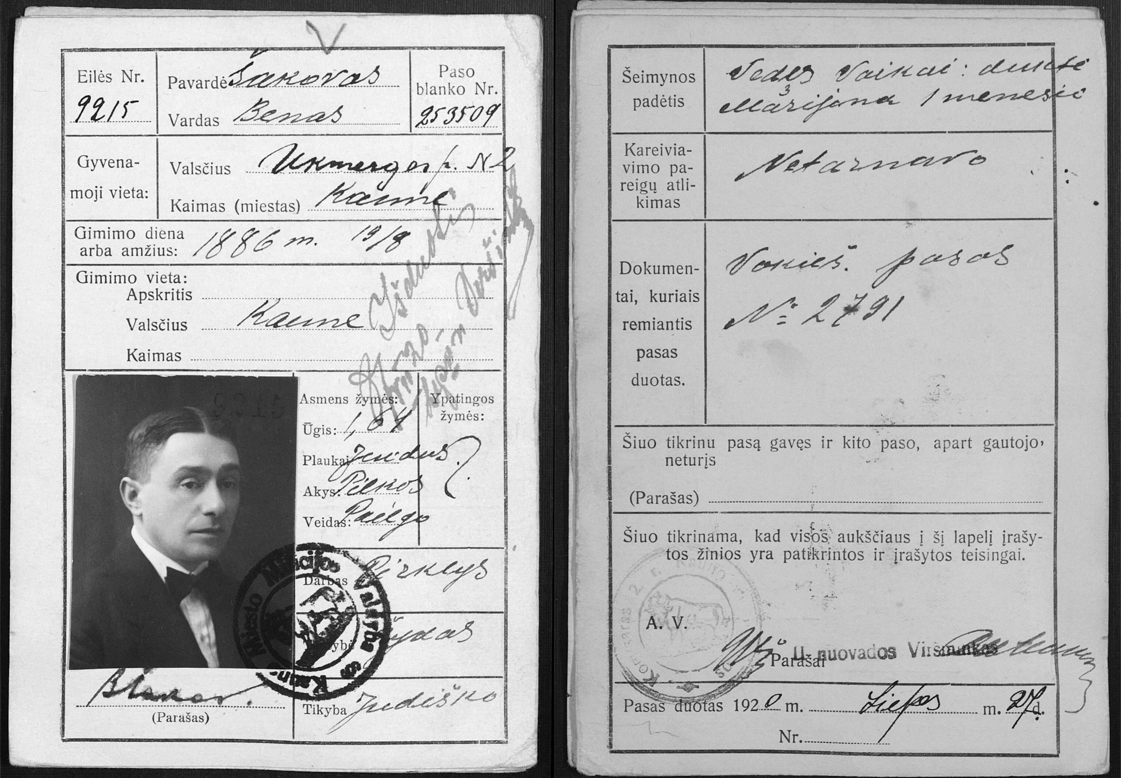 Eilės Nr.
9215
Pavardė Šakovas
Vardas Benas
Paso
blanko Nr.
253509
Gyvena-
moji vieta:
Valsčius Ukmergės p. N 2
Kaimas (miestas) Kaune
Gimimo diena
arba amžius: 1886 m. 19/8
Gimimo vieta:
Apskritis
Valsčius Kaune
Kaimas
Asmens žymės:
Ūgis: 1,64
Plaukai Juodus
Akys: Pilkos
Veidas: Pailgo
Ypatingos
žymės:
Darbas Pirklys
Žydas
Tikyba Judiško
Kauno Miesto Milicijos Valdyba
(Parašas)
Šeimynos
padėtis
Vedęs Vaikai: duktė
Marijona 1 menesio
Kareivia-
vimo pa-
reigų atli-
kimas
Netarnavo
Dokumen-
tai, kuriais
remiantis
pasas
duotas.
Vokieš. pasas
№ 2791
Šiuo tikrinu pasą gavęs ir kito paso, apart gautojo,
neturįs
(Parašas)
Šiuo tikrinama, kad visos aukščiaus į šį lapelį įrašy-
tos žinios yra patikrintos ir įrašytos teisingai.
A. V.
II nuovados Viršininkas
Parašai
Pasas duotas 1920 m. Liepos m. 27 d.
Nr.